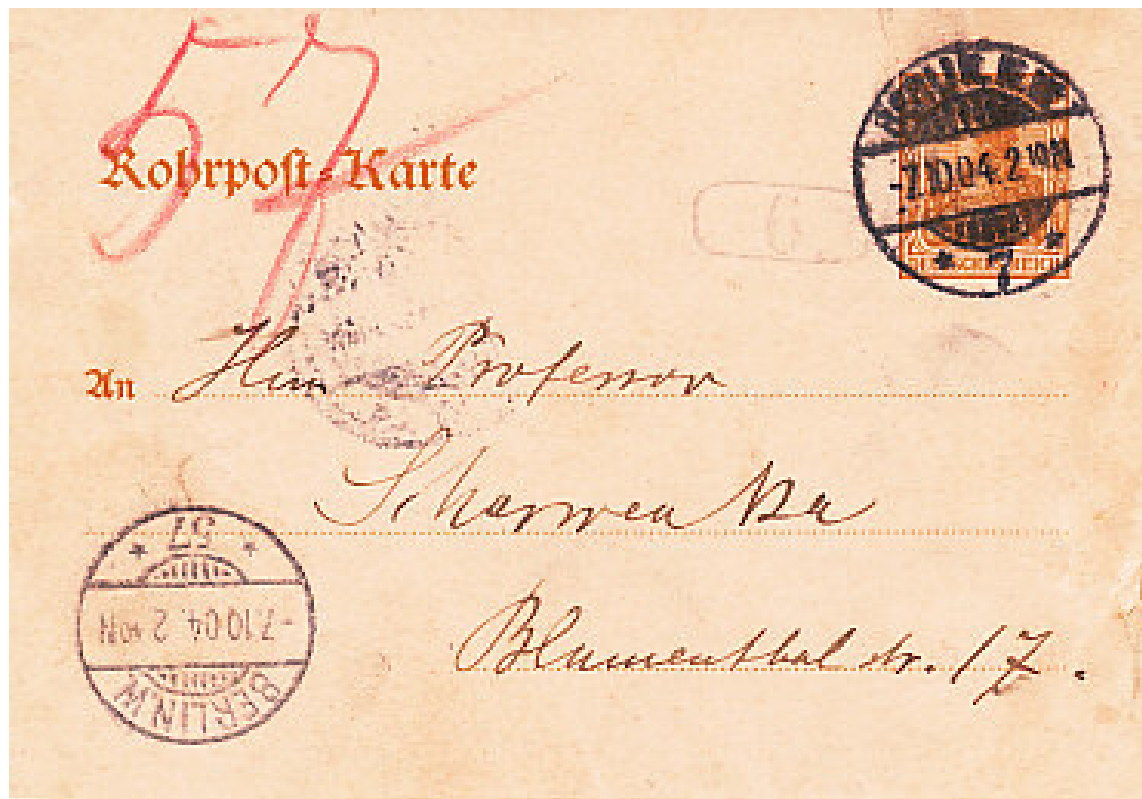 57
Rohrpoſt-Karte
BERLIN
-7.10.04. 2 10 N
* 7 *
DEUTSCHES REICH
6.
An Herrn Professor
Scharwenka
Blumenthalstr. 17.
BERLIN.W
-7.10.04. 2 10 N
* 57 *